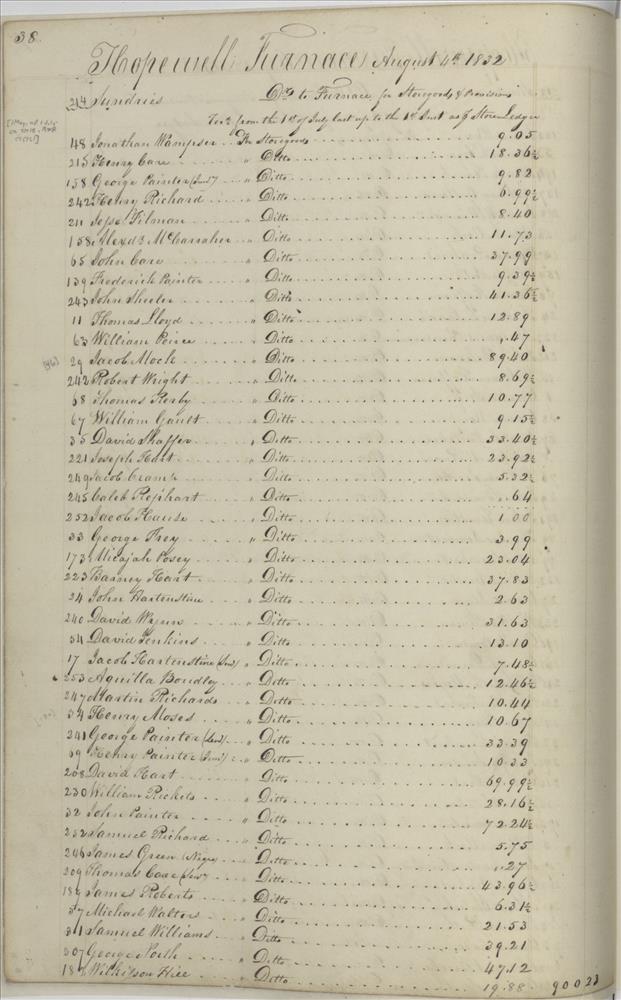 38.
Hopewell Furnace August 4th 1832
214 Sundries Drs to Furnace for Storegoods & Provisions
from the 1st of July last up to the 1st Inst as Store Ledger
48 Jonathan Wampser .. For Storegoods 9.05
215 Henry Care " Ditto 18.36½
158 George Painter (Jun) " Ditto 9.82
242 Henry Richard " Ditto 6.99½
211 Jesse Filman " Ditto 8.40
158 Alexdr McCarraher " Ditto 11.73
65 John Care " Ditto 37.99
139 Frederick Painter " Ditto 9.39½
243 John Sheeler " Ditto 41.36½
11 Thomas Lloyd " Ditto 12.89
63 William Peirce " Ditto .47
29 Jacob Mock " Ditto 89.40
242 Robert Wright " Ditto 8.69½
68 Thomas Kerby " Ditto 10.77
67 William Gault " Ditto 9.15½
35 David Shaffer " Ditto 33.40½
221 Joseph Hart " Ditto 23.92½
249 Jacob Cramp " Ditto 5.32½
245 Caleb Rephart " Ditto .64
252 Jacob Hause " Ditto 1 00
33 George Frey " Ditto 3.99
173 Micajah Posey " Ditto 23.04
223 Barney Hart " Ditto 37.83
24 John Hartenstine " Ditto 2.63
240 David Wynn " Ditto 31.63
54 David Jenkins " Ditto 13.10
17 Jacob Hartenstine (Snr) " Ditto 7.48½
253 Aquilla Boudley " Ditto 12.46½
247 Martin Richards " Ditto 10.44
34 Henry Moses " Ditto 10.67
241 George Painter (Snr) " Ditto 33.39
39 Henry Painter (Jun) " Ditto 10.33
208 David Hart " Ditto 69.99½
230 William Rickets " Ditto 28.16½
32 John Painter " Ditto 72.24½
232 Samuel Richard " Ditto 5.75
246 James Green (Negro) " Ditto .27
209 Thomas Care (Snr) " Ditto 43.96½
184 James Roberts " Ditto 6.31½
37 Michael Walters " Ditto 21.53
31 Samuel Williams " Ditto 39.21
307 George North " Ditto 47.12
Wilkison Hill Ditto 19.88 90023